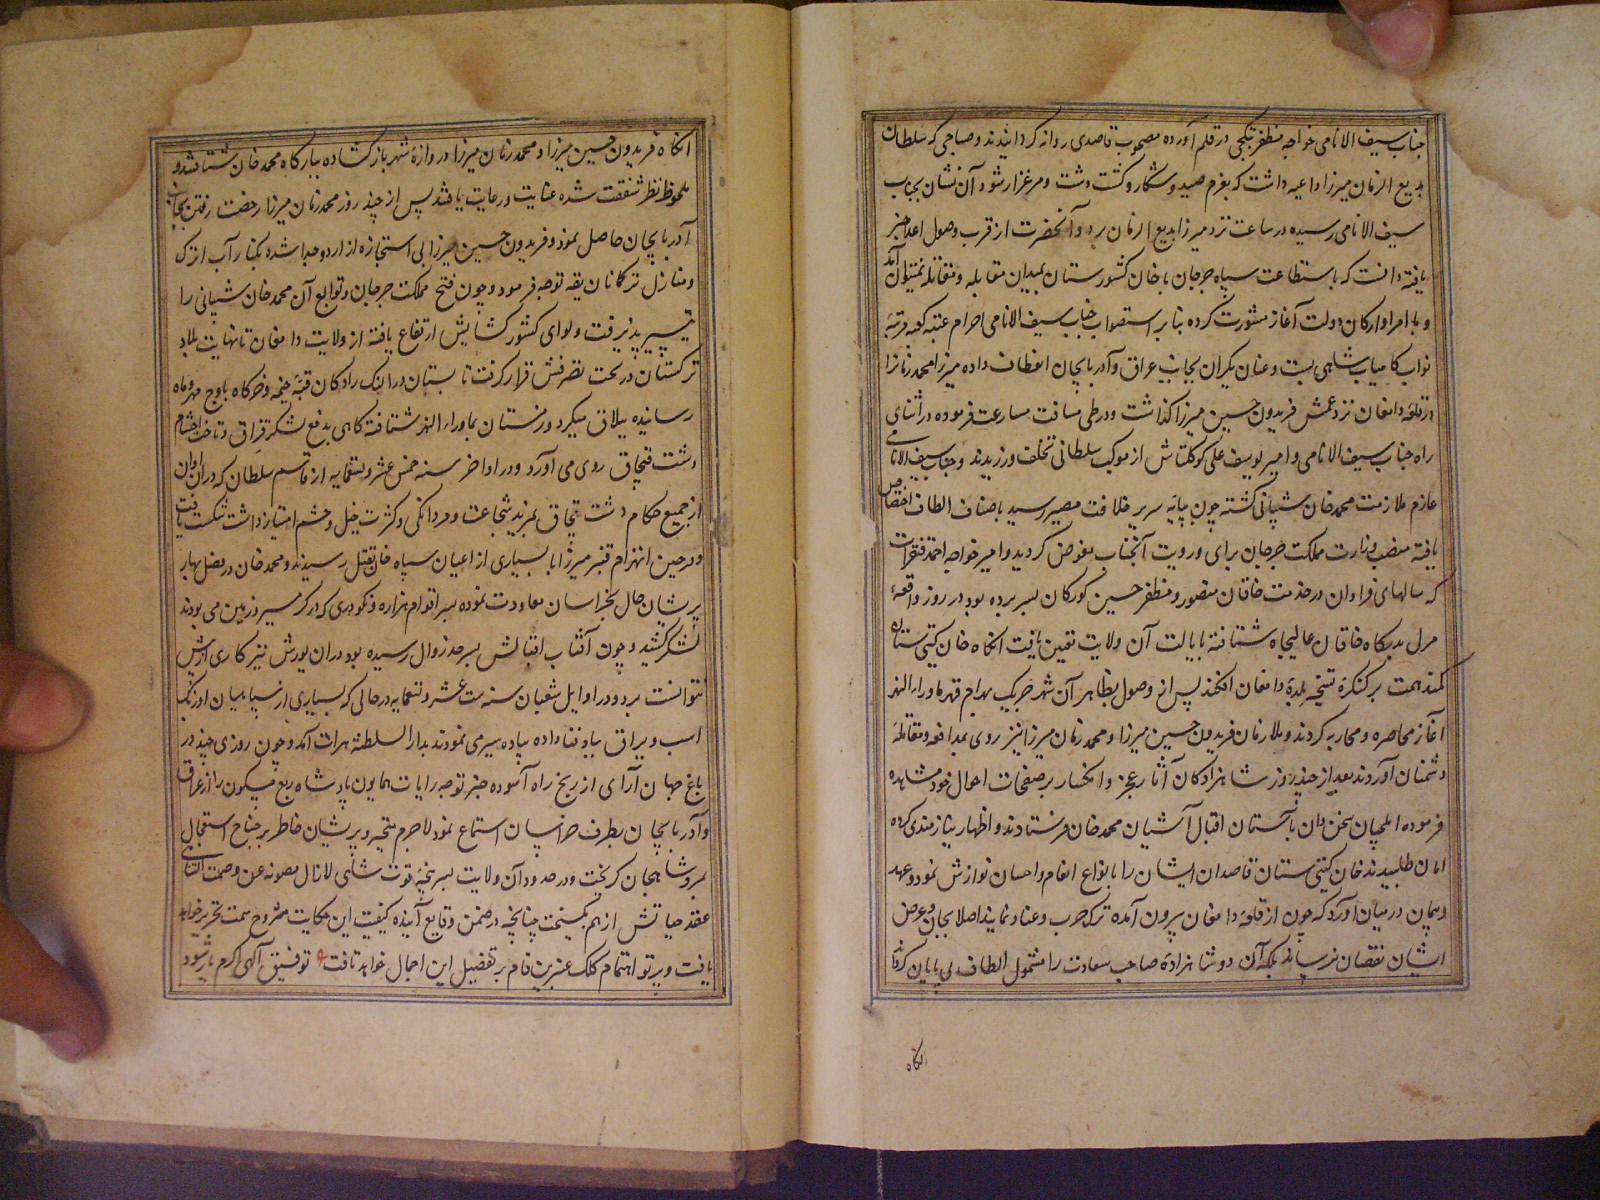 جناب سیف الانامی خواجه مظفر تبکچی در قلم آورده مصحوب قاصدی روانه کردانیدند و صباحی که سلطان
بدیع الزمان میرزا داعیه داشت که بعزم صید و شکار و کشت دشت و مرغزار شود آن نشان بجناب
سیف الانامی رسیده در ساعت نزد میرزا بدیع الزمان برد و آنحضرت از قرب وصول اعدا خبر
یافته دانست که باستطاعت سپاه جرجان با خان کشورستان بمیدان مقابله و مقاتله نمیتوان آمد
و با امرا و ارکان دولت آغاز مشورت کرده بنابر استصواب جناب سیف الانامی احرام عتبه کعبه مرتبه
نواب کامیاب شاهی بست و عنان یکران بجانب عراق و آذربایجان انعطاف داده میرزا محمد زمانرا
در قلعه دامغان نزد عمش فریدون حسین میرزا کذاشت و در طی مسافت مسارعت فرموده در اثنای
راه جناب سیف الانامی و امیر یوسف علی کوکلتاش از موکب سلطانی تخلف ورزیدند و جناب سیف الانامی
عازم ملازمت محمد خان شیبانی کشته چون بپایه سریر خلافت مصیر رسید باصناف الطاف اختصاص
یافته منصب وزارت مملکت جرجان برای و رویت آنجناب مفوض کردید و امیر خواجه احمد
که سالهای فراوان در خدمت خاقان منصور و مظفر حسین کورکان بسر برده بود در روز واقعهٔ
مرل بدرکاه خاقان عالیجاه شتافته بایالت آن ولایت تعین یافت انکاه خان کیتی ستان
کمند همت بر کنکره تسخیر بلده دامغان افکند پس از وصول بظاهر آن شهر چریک بهرام قهر ماوراء النهر
آغاز محاصره و محاربه کردند و ملازمان فریدون حسین میرزا و محمد زمان میرزا نیز روی بمدافعه و مقاتله
دشمنان آوردند بعد از چند روز شاهزادکان آثار عجز و انکسار بر صفحات احوال خود مشاهده
فرموده ایلچیان سخن دان باستان اقبال آشیان محمد خان فرستادند و اظهار نیازمندی کرده
امان طلبیدند خان کیتی ستان قاصدان ایشان را بانواع انعام و احسان نوازش نمود و عهد
و پیمان در میان آورد که چون از قلعه دامغان بیرون آمده ترک حرب و عناد نمایند اصلا بجان و عرض
ایشان نقصان نرساند بلکه آن دو شاهزاده صاحب سعادت را مشمول الطاف بی پایان کرداند
انکاه
انکاه فریدون حسین میرزا و محمد زمان میرزا دروازهٔ شهر باز کشاده ببارکاه محمد خان شتافتند و
ملحوظ نظر شفقت شده عنایت و رعایت یافتند پس از چند روز محمد زمان میرزا رخصت رفتن بجانب
آذربایجان حاصل نمود و فریدون حسین میرزا بی استجازه از اردو جدا شده بکنار آب اترک
و منازل ترکمانان یقه توجه فرمود و چون فتح مملکت جرجان و توابع آن محمد خان شیبانی را
تیسیر پذیرفت و لوای کشور کشایش ارتفاع یافته از ولایت دامغان تا نهایت بلاد
ترکستان در تحت تصرفش قرار کرفت تابستان در النک رادکان قبهٔ خیمه و خرکاه باوج مهر و ماه
رسانیده ییلاق میکرد و زمستان بماوراء النهر شتافته کاهی بدفع لشکر قزاق و تاخت احشام
دشت قبچاق روی می آورد و در اواخر سنه خمس عشر و تسعمایه از قاسم سلطان که در ان اوان
از جمیع حکام دشت قبچاق بمزید شجاعت و مردانکی و کثرت خیل و حشم امتیاز داشت شکست یافت
و در حین انهزام قنبر میرزا با بسیاری از اعیان سپاه خان بقتل رسیدند و محمد خان در فصل بهار
پریشان حال بخراسان معاودت نموده بسر اقوام هزاره و نکودری که در کرمسیر و زمین می بودند
لشکر کشید و چون آفتاب اقبالش بسرحد زوال رسیده بود در ان یورش نیز کاری از پیش
نتوانست برد و در اوایل شعبان سنه ست عشر و تسعمایه در حالی که بسیاری از سپاهیان اوزبک
اسب و یراق بباد فنا داده پیاده سیر می نمودند بدار السلطنه هرات آمد و چون روزی چند در
باغ جهان آرای از رنج راه آسوده خبر توجه رایات همایون پادشاه ربع مسکون را از عراق
و آذربایجان بطرف خراسان استماع نمود لاجرم متحیر و پریشان خاطر بر جناح استعجال
بمرو شاهجان کریخت و در حدود آن ولایت بسرپنجه قوت شاهی لازال مصونه عن وصمت التناهی
عقد حیاتش از هم بکسیخت چنانچه در ضمن وقایع آینده کیفیت این حکایت مشروح سمت تحریر خواهد
یافت و پرتو اهتمام کلک عنبرین فام بر تفصیل این اجمال خواهد تافت توفیق الهی اکرم یار شود